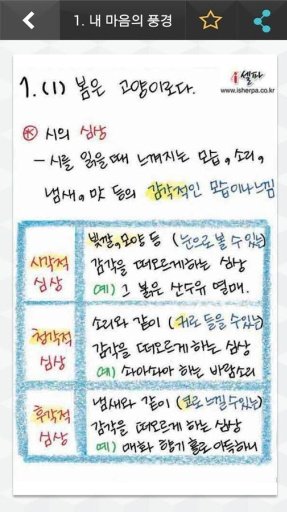 1. 내 마음의 풍경
셀파
www.isherpa.co.kr
1.(1) 봄은 고양이로다.
※ 시의 심상
- 시를 읽을 때 느껴지는 모습, 소리,
냄새, 맛 등의 감각적인 모습이나 느낌
시각적 심상
빛깔, 모양 등 (눈으로 볼 수 있는)
감각을 떠오르게 하는 심상
예) 그 붉은 산수유 열매.
청각적 심상
소리와 같이 (귀로 들을 수 있는)
감각을 떠오르게 하는 심상
예) 소아소아 하는 바람소리
후각적 심상
냄새와 같이 (코로 느낄 수 있는)
감각을 떠오르게 하는 심상
예) 매화 향기 홀로 아득하니